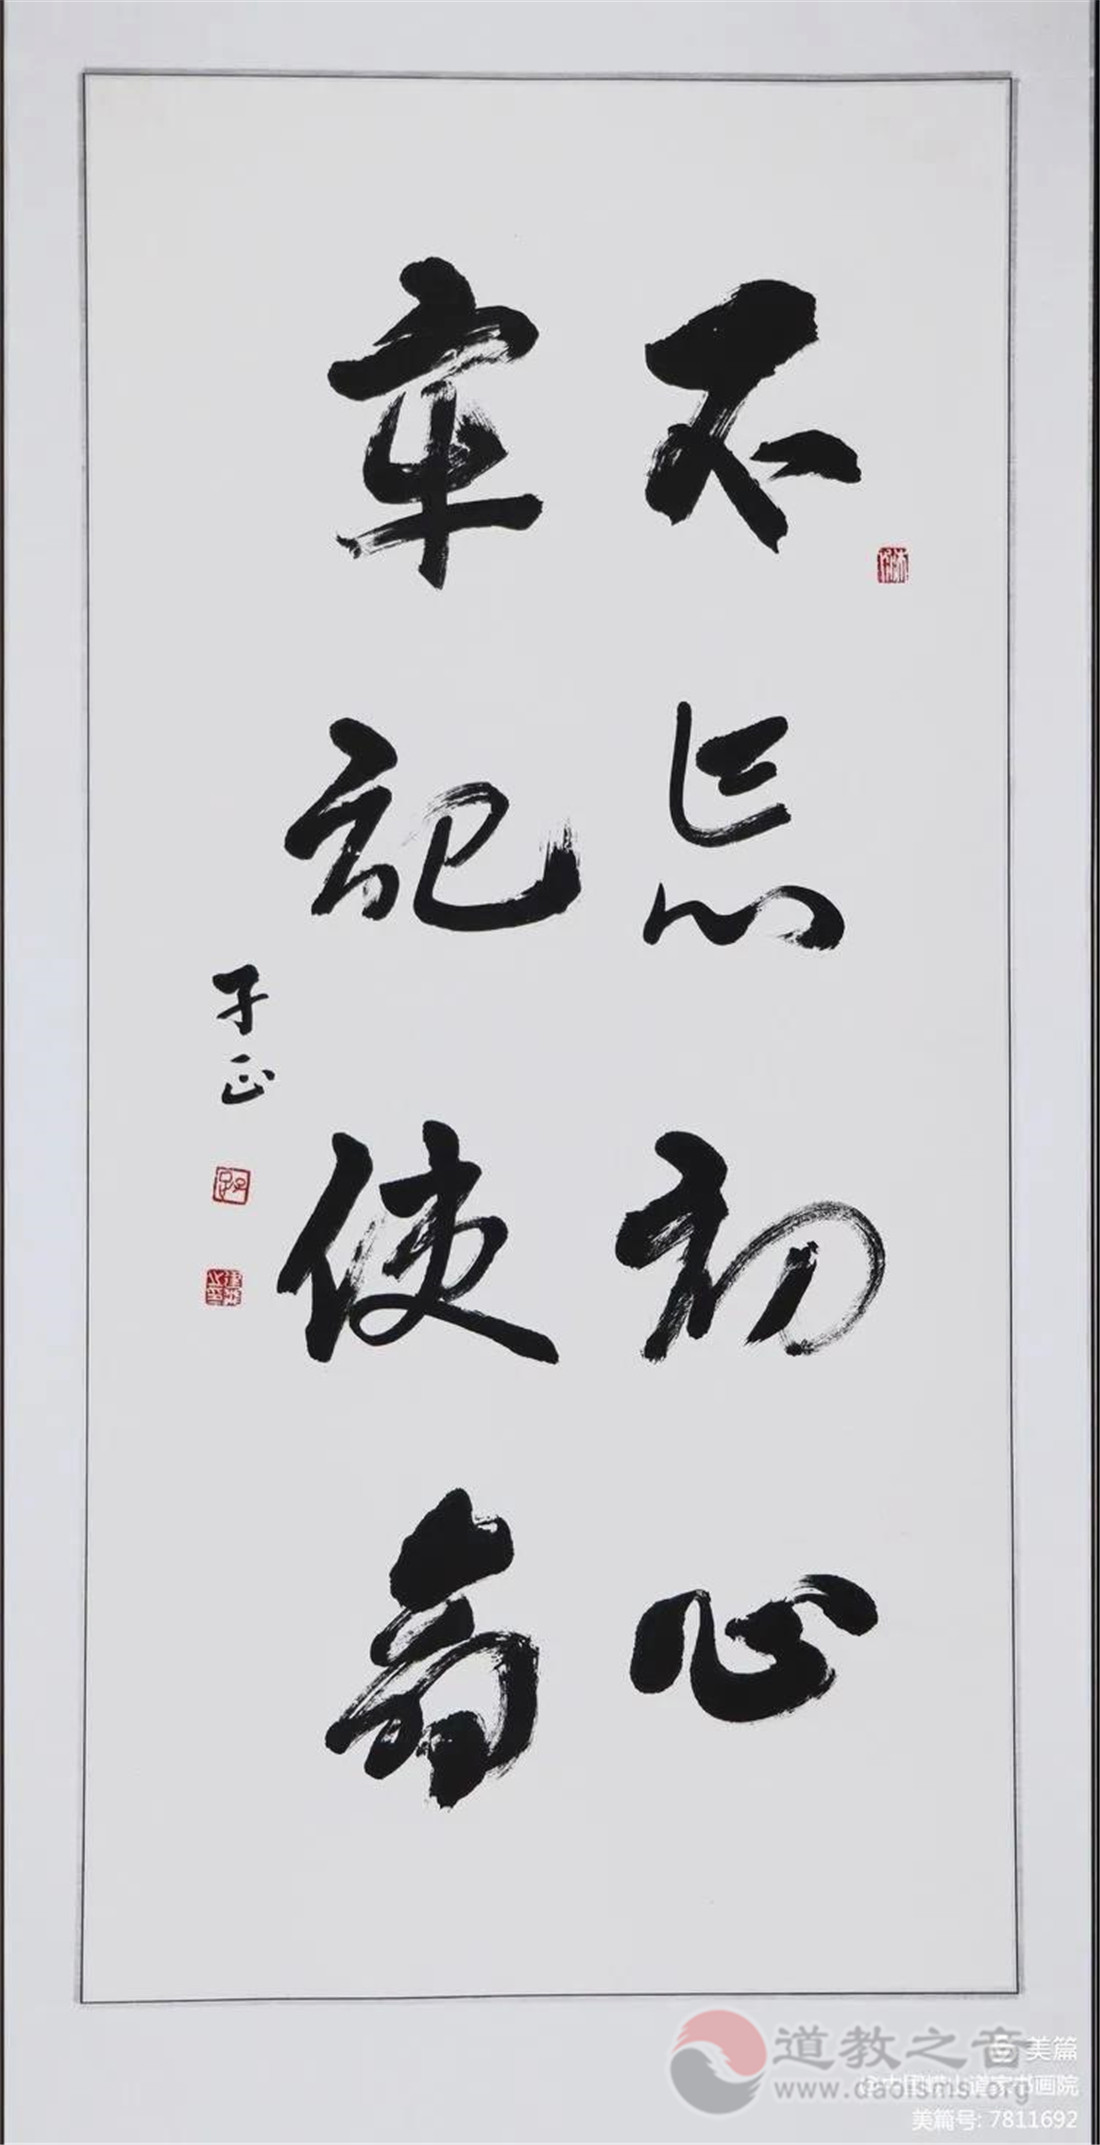 不忘初心
牢记使命
子正
道教之音
www.daoisms.org
美篇
美篇号: 7811692